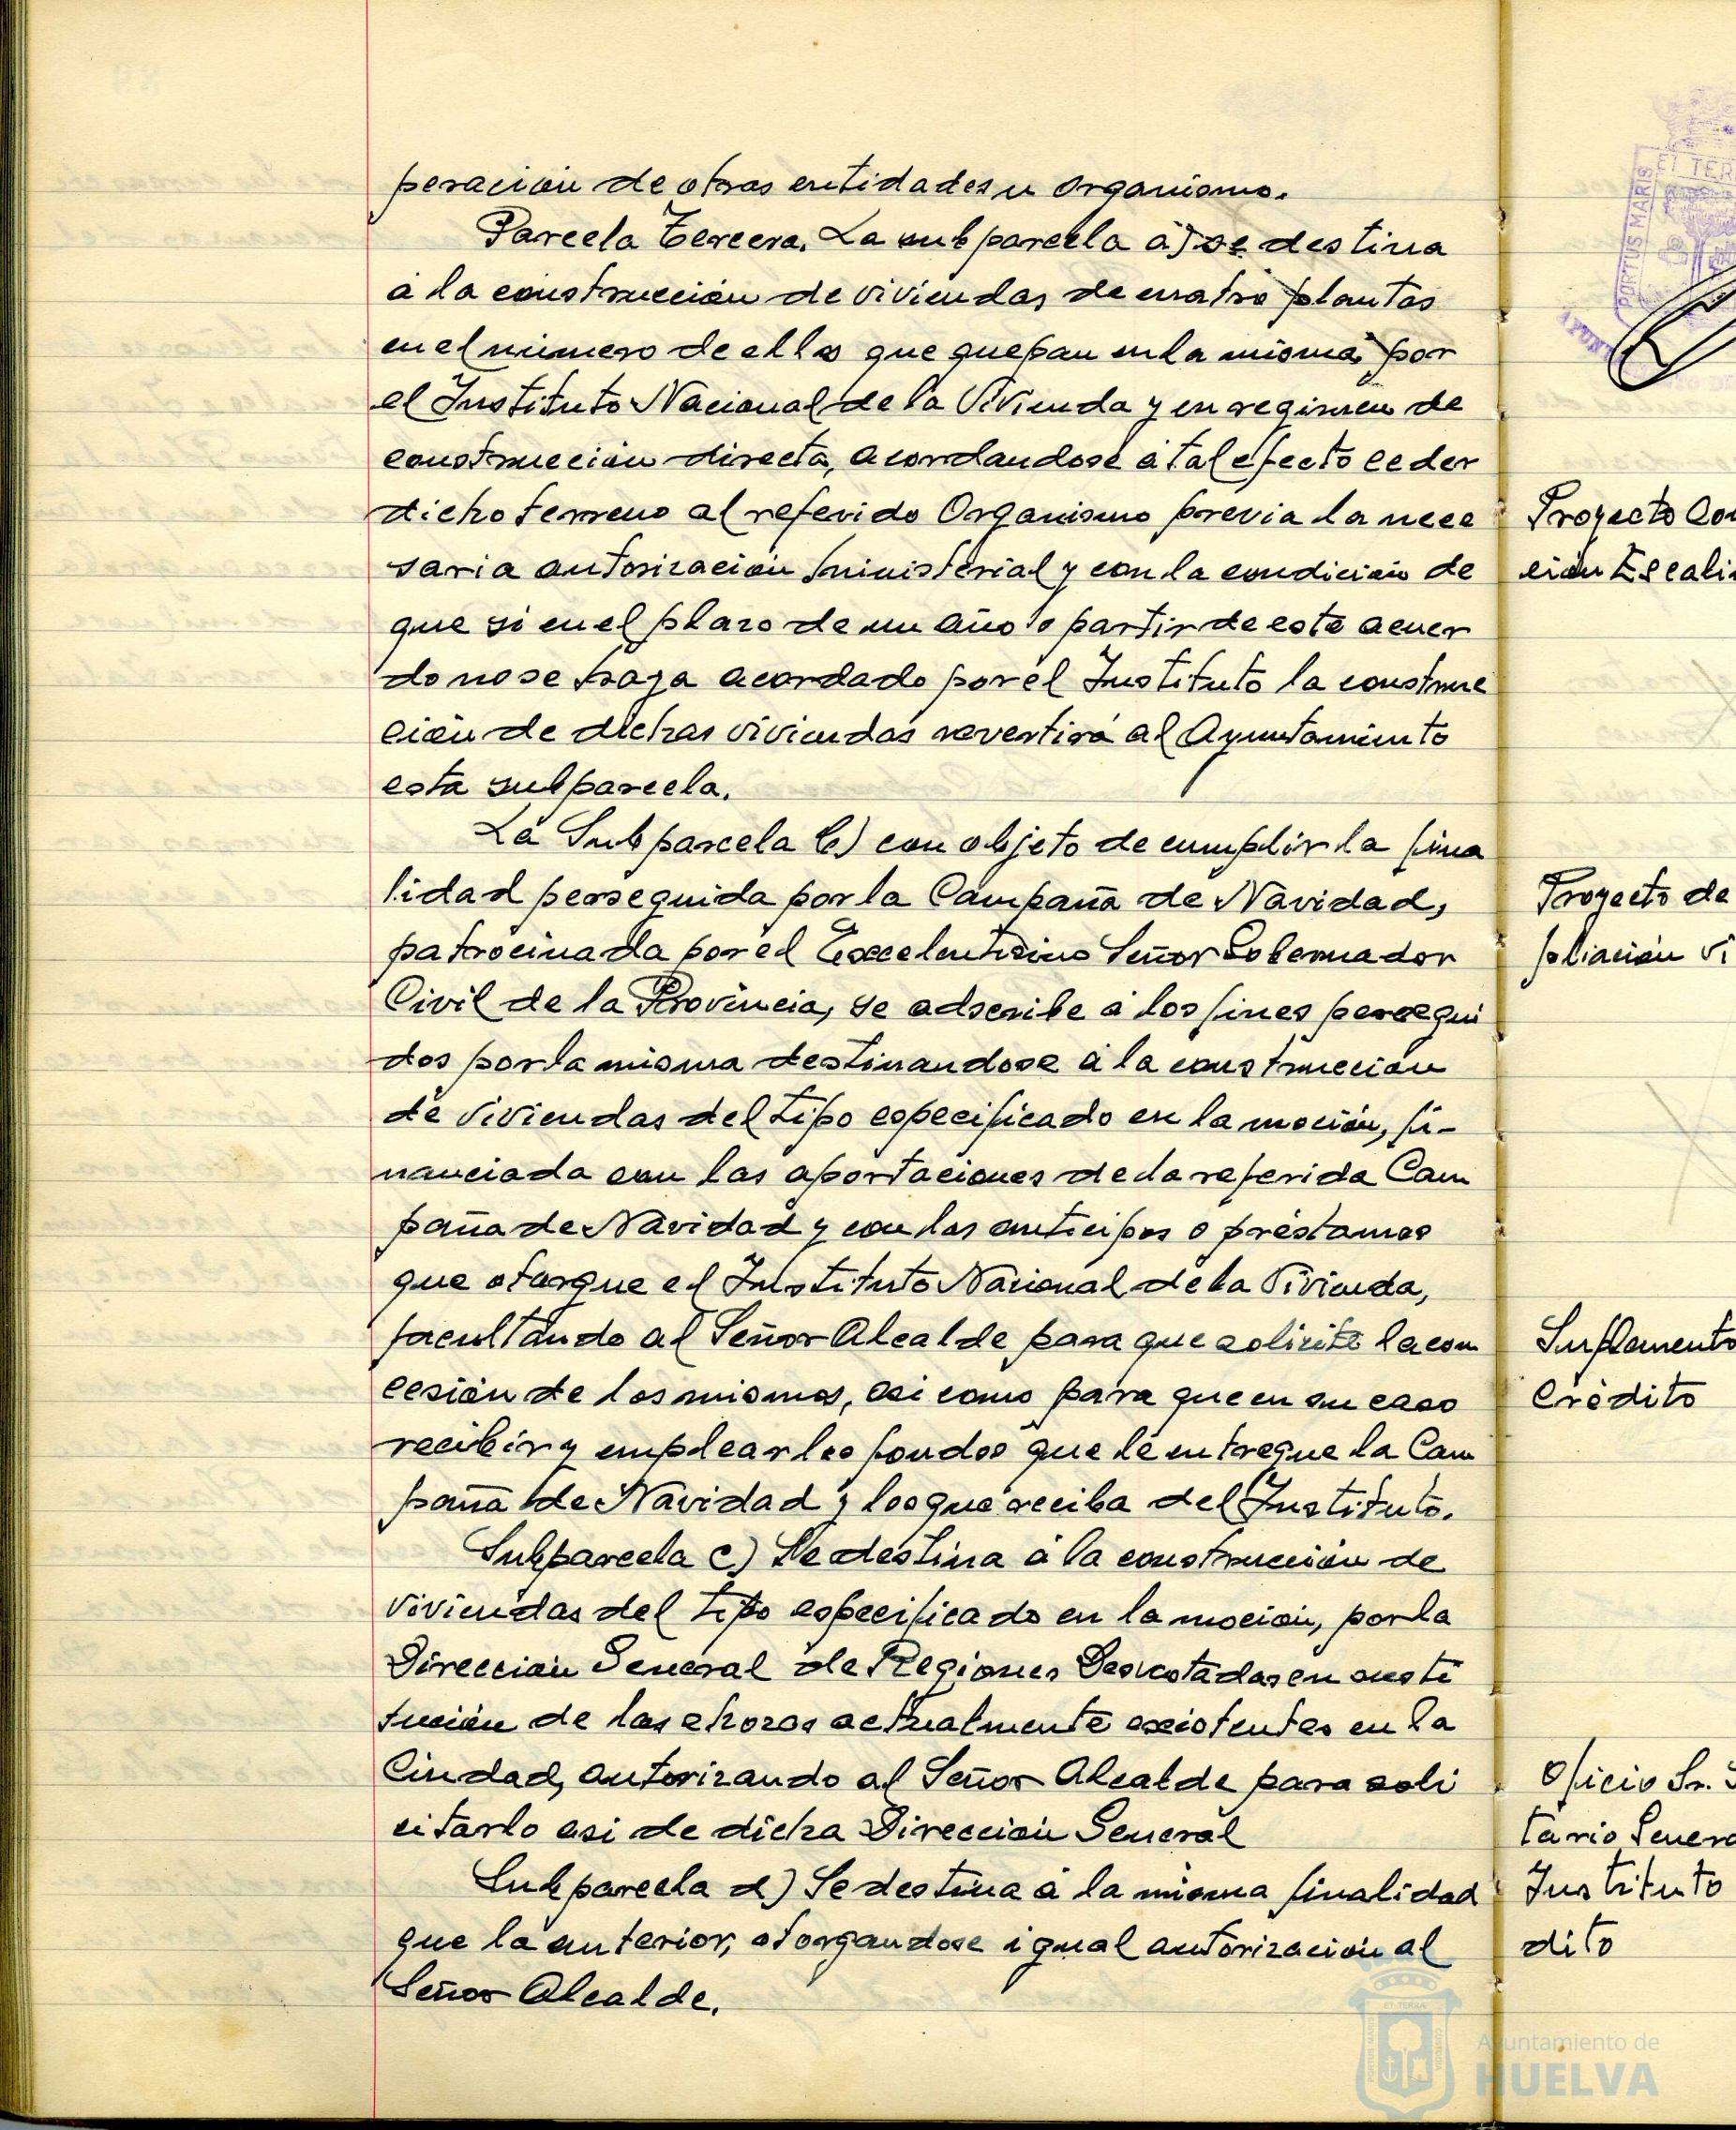 peración de otras entidades u Organismo.
Parcela Tercera. La subparcela a) se destina
a la construcción de viviendas de cuatro plantas
en el número de ellas que quepan en la misma, por
el Instituto Nacional de la Vivienda y en regimen de
construcción directa, acordandose a tal efecto ceder
dicho terreno al referido Organismo previa la nece
saria autorización ministerial y con la condición de
que si en el plazo de un año a partir de este acuer
do no se haya acordado por el Instituto la construc
ción de dichas viviendas revertirá al Ayuntamiento
esta subparcela.
La Subparcela b) con objeto de cumplir la fina
lidad perseguida por la Campaña de Navidad,
patrocinada por el Excelentisimo Señor Gobernador
Civil de la Provincia, se adscribe a los fines persegui
dos por la misma destinandose a la construcción
de viviendas del tipo especificado en la moción, fi-
nanciada con las aportaciones de la referida Cam
paña de Navidad y con los anticipos o préstamos
que otorgue el Instituto Nacional de la Vivienda,
facultando al Señor Alcalde para que solicite la con
cesión de los mismos, asi como para que en su caso
recibir y emplear los fondos que le entregue la Cam
paña de Navidad y los que reciba del Instituto.
Subparcela c) Se destina a la construcción de
viviendas del tipo especificado en la moción, por la
Dirección General de Regiones Devastadas en susti
tución de las chozas actualmente existentes en la
Ciudad, autorizando al Señor Alcalde para soli
citarlo asi de dicha Dirección General
Subparcela d) Se destina a la misma finalidad
que la anterior, otorgandose igual autorización al
Señor Alcalde.
PORTUS MARIS
ET TER
Proyecto Con
ción Escali
Proyecto de
pliación Vi
Suplemento
Crédito
Oficio Sr. S
tario Gener
Instituto
dito
Ayuntamiento de
HUELVA